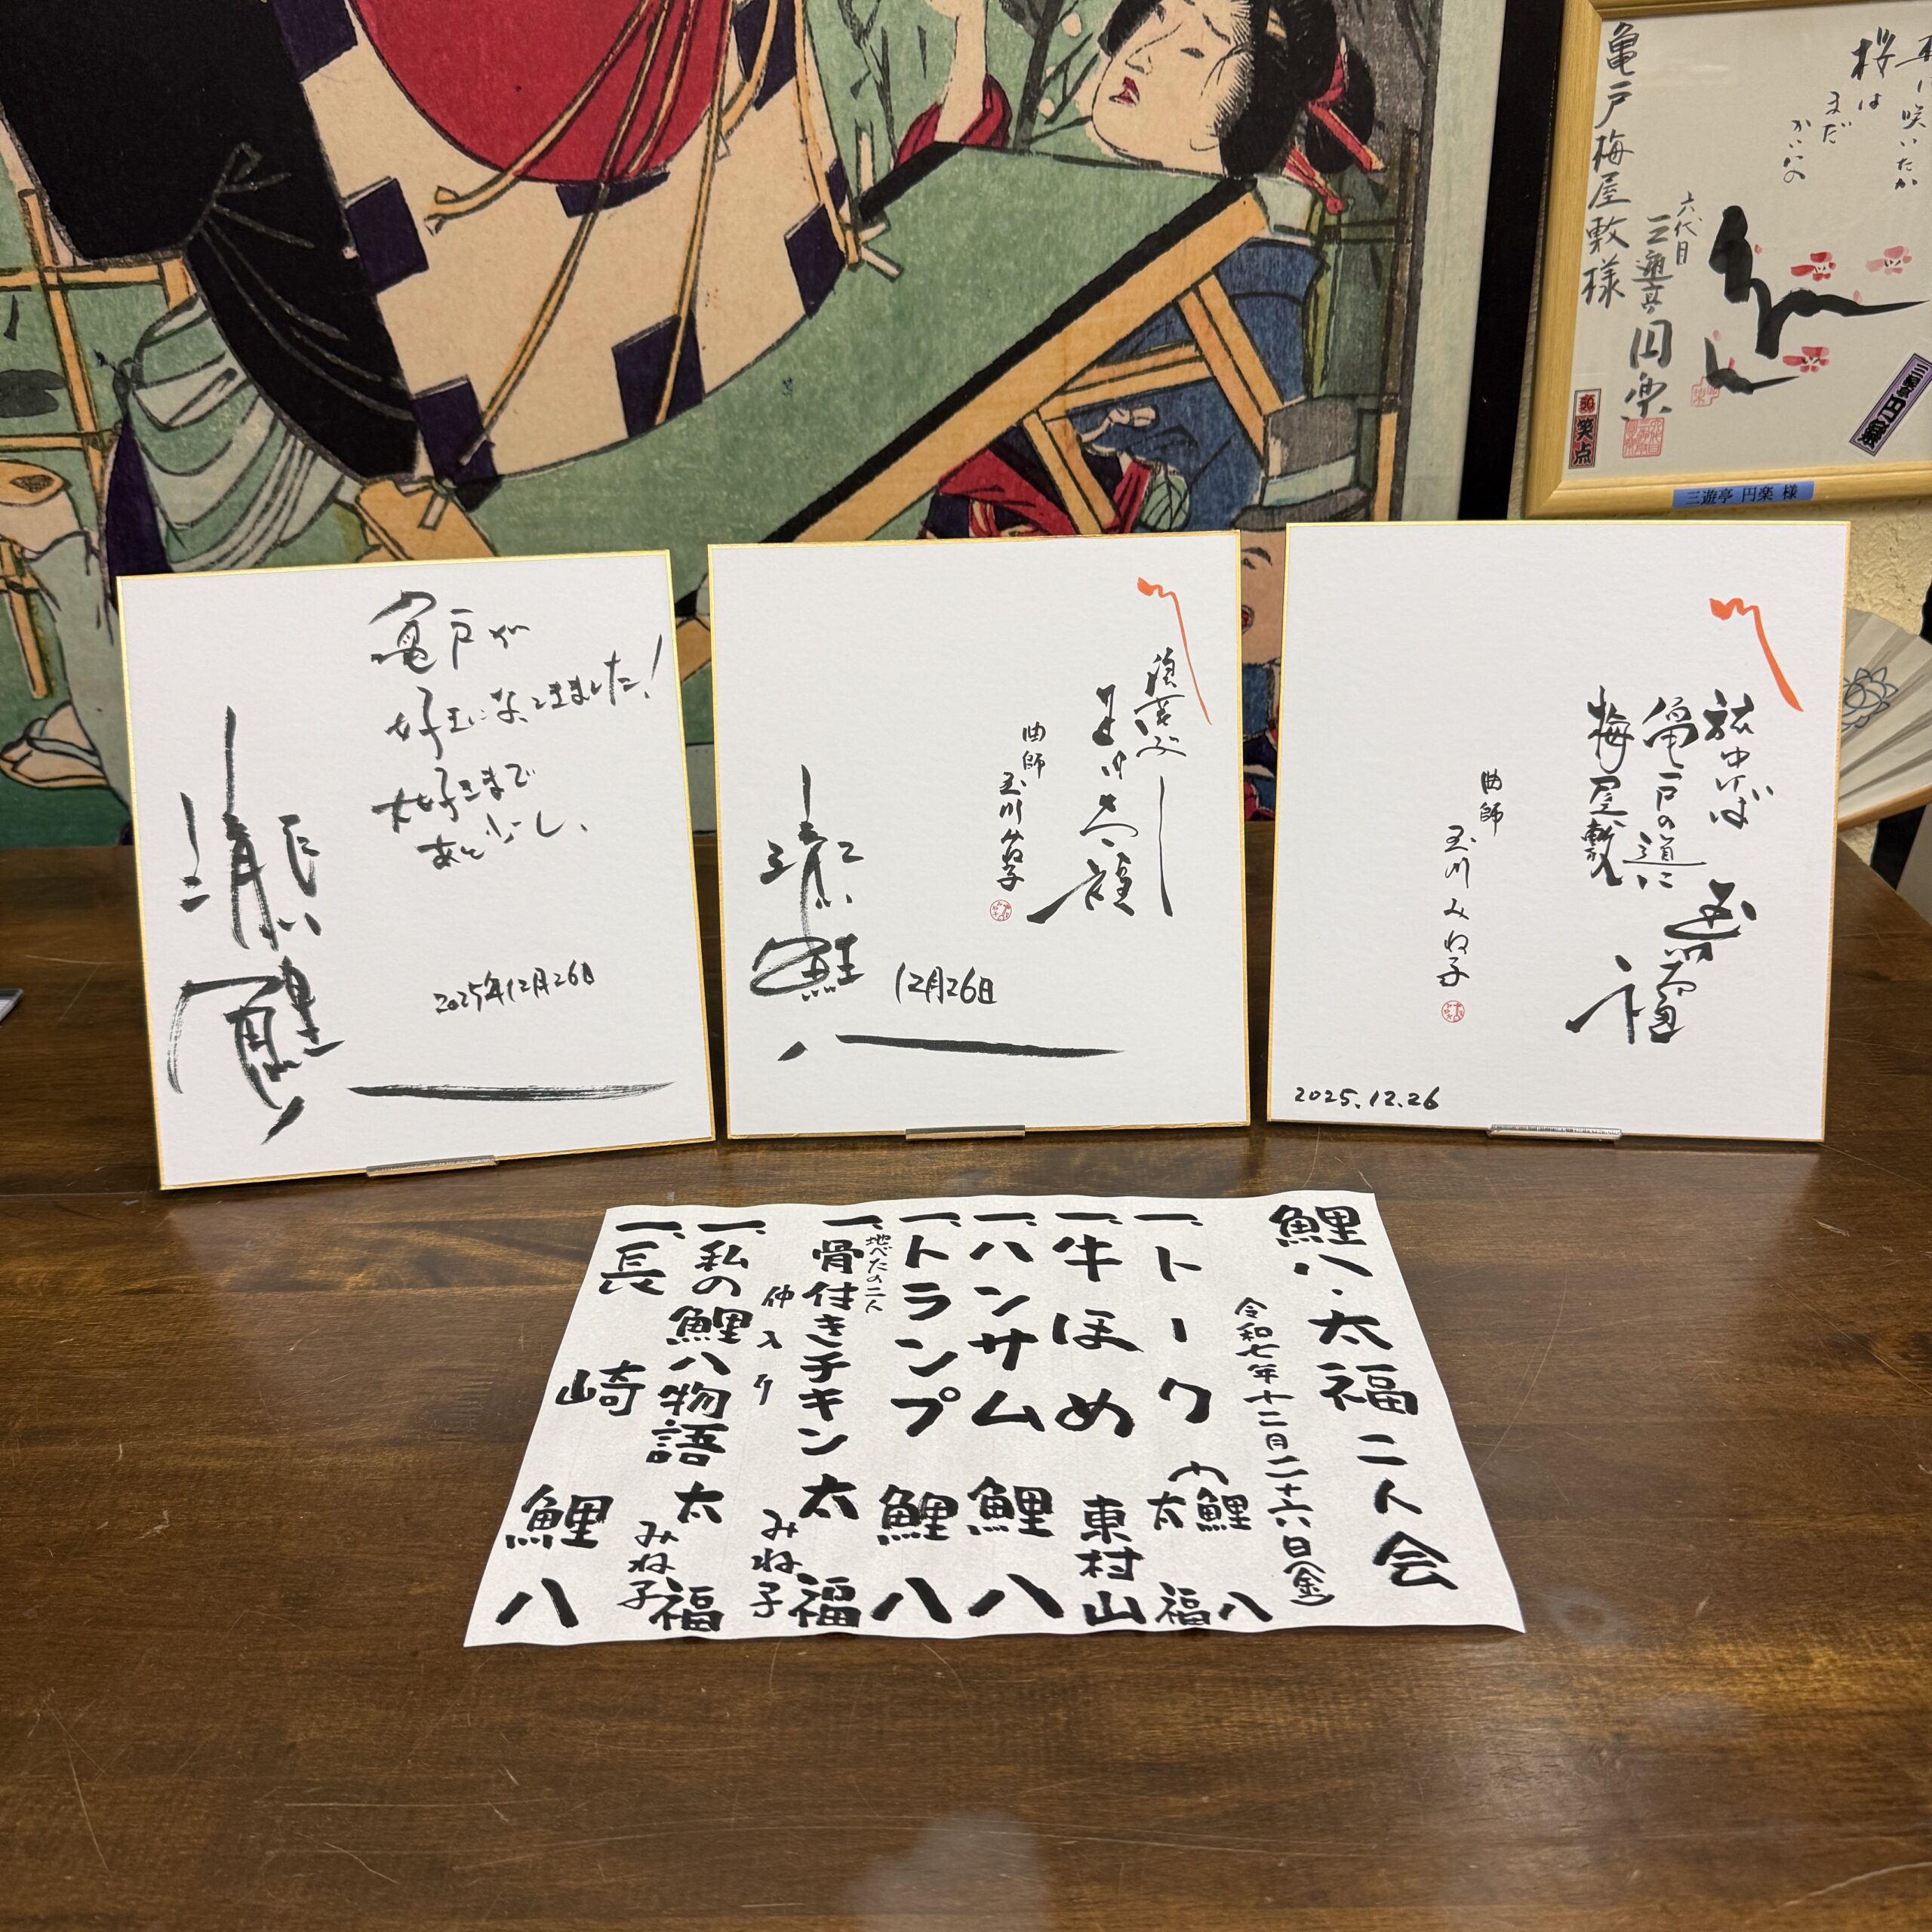 亀戸梅屋敷様
六代目
三遊亭円楽
桜は
まだかいな
咲いたか
笑点
三遊亭 円楽 様
亀戸が
好きになってきました!
大好きまで
あと少し、
瀧川
鯉八
2025年12月26日
浪曲師
玉川太福
曲師
玉川みね子
瀧川
鯉八
12月26日
旅ゆけば
亀戸の道に
梅屋敷
玉川太福
曲師
玉川みね子
2025.12.26
鯉八・太福 二人会
令和七年十二月二十六日(金)
一、トーク 鯉八 太福
一、牛ほめ 東村山
一、ハンサム 鯉八
一、トランプ 鯉八
一、地べたの二人 骨付きチキン 太福 みね子
仲入り
一、私の鯉八物語 太福 みね子
一、長崎 鯉八